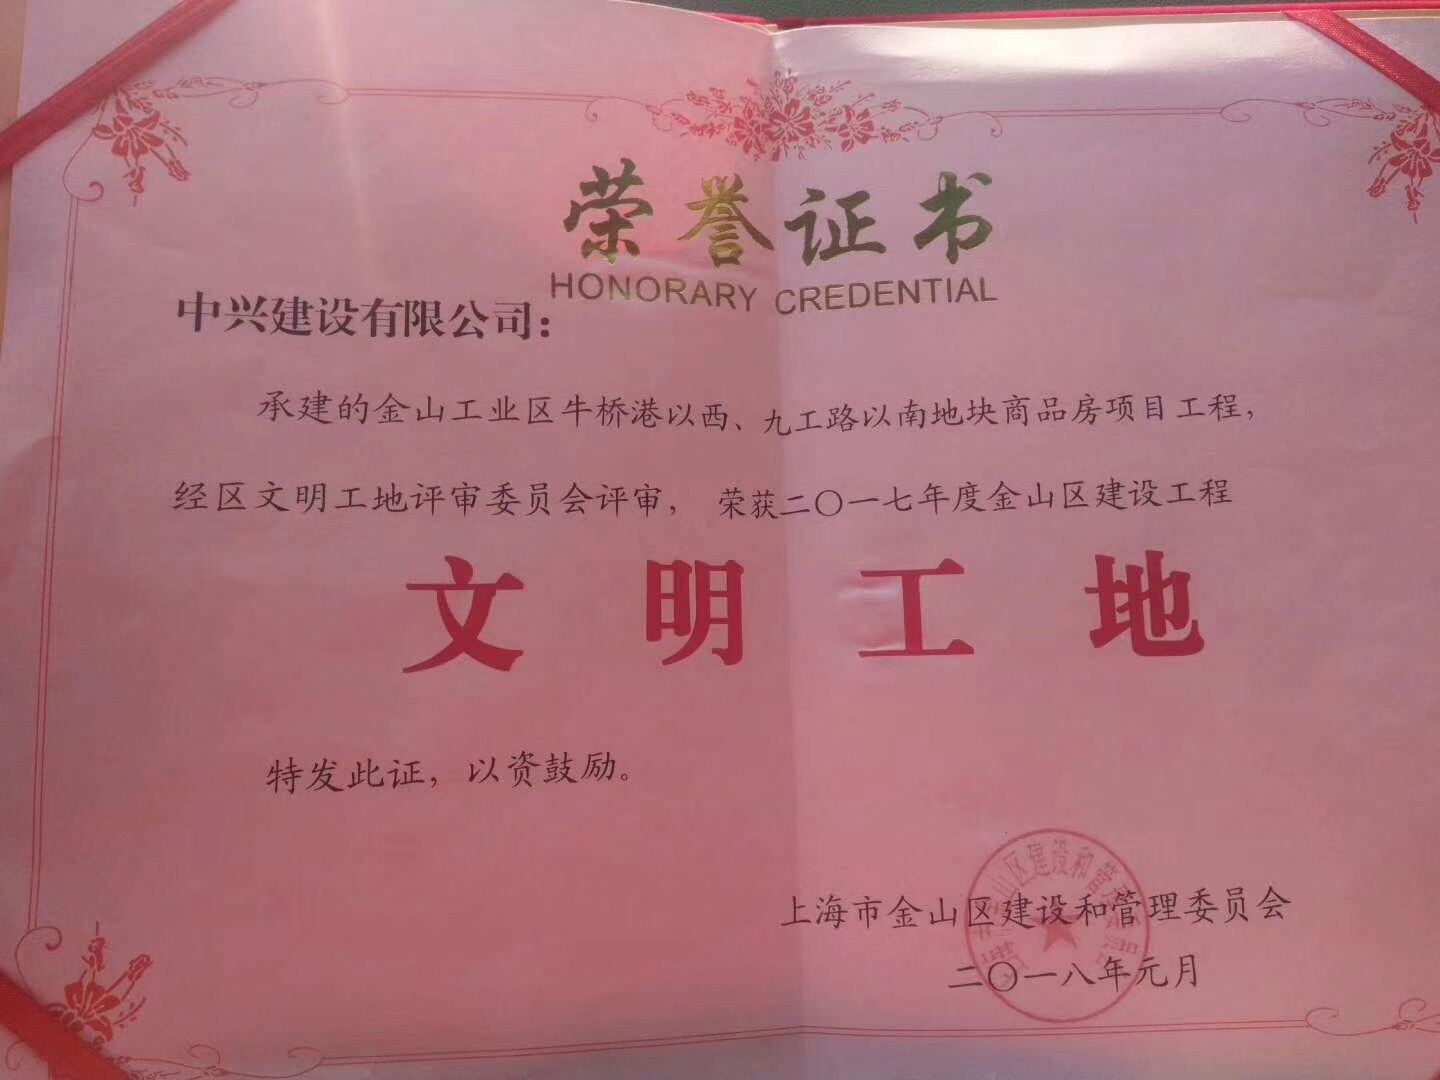 荣誉证书
HONORARY CREDENTIAL
中兴建设有限公司：
承建的金山工业区牛桥港以西、九工路以南地块商品房项目工程，
经区文明工地评审委员会评审，荣获二〇一七年度金山区建设工程
文明工地
特发此证，以资鼓励。
上海市金山区建设和管理委员会
二〇一八年元月